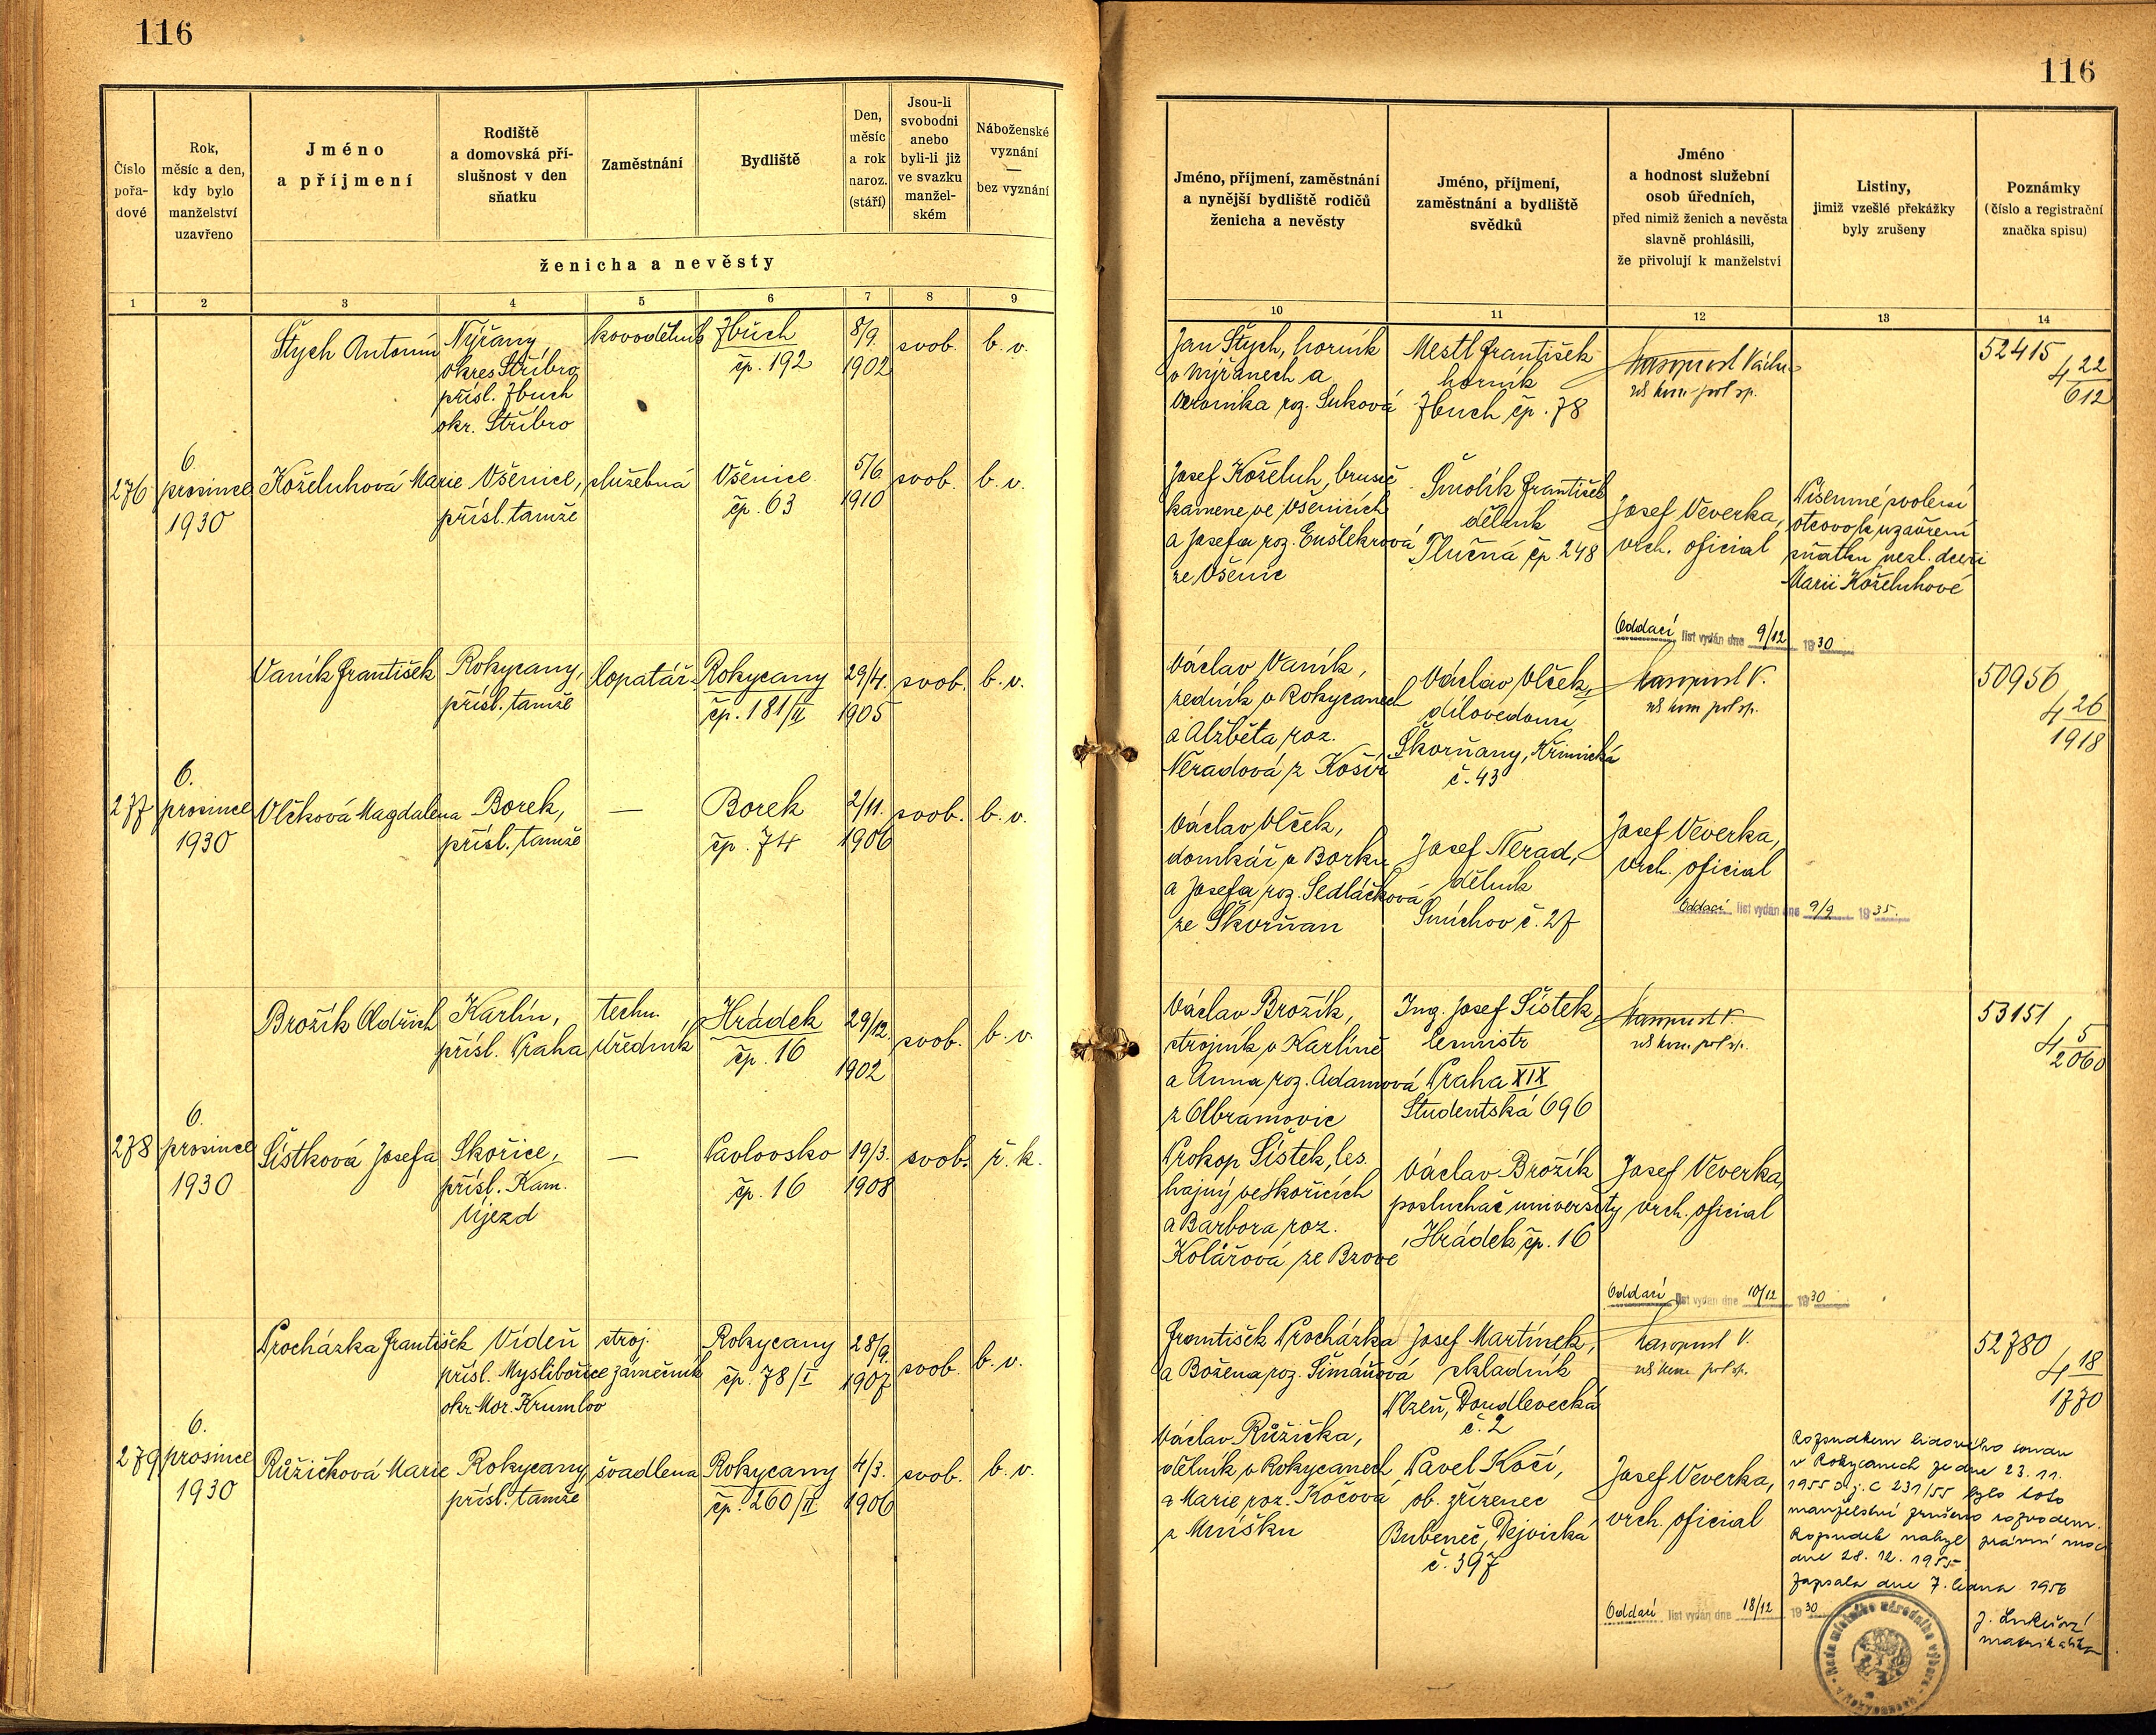 116
Číslo
pořa-
dové
Rok,
měsíc a den,
kdy bylo
manželství
uzavřeno
Jméno
a příjmení
Rodiště
a domovská pří-
slušnost v den
sňatku
Zaměstnání
Bydliště
Den,
měsíc
a rok
naroz.
(stáří)
Jsou-li
svobodni
anebo
byli-li již
ve svazku
manžel-
ském
Náboženské
vyznání
—
bez vyznání
ženicha a nevěsty
1 2 3 4 5 6 7 8 9
Štych Antonín
Nýřany,
okres Stříbro
přísl. Zbuch
okr. Stříbro
kovodělník
Zbůch
čp. 192
8/9.
1902
svob.
b. v.
276
6.
prosince
1930
Koželuhová Marie
Všenice,
přísl. tamže
služebná
Všenice
čp. 63
5/6.
1910
svob.
b. v.
Vaník František
Rokycany,
přísl. tamže
lopatář
Rokycany
čp. 181/II
29/4.
1905
svob.
b. v.
277
6.
prosince
1930
Vlčková Magdalena
Borek,
přísl. tamže
—
Borek
čp. 74
2/11.
1906
svob.
b. v.
Brožík Oldřich
Karlín,
přísl. Praha
techn.
úředník
Hrádek
čp. 16
29/12.
1902
svob.
b. v.
278
6.
prosince
1930
Šístková Josefa
Skořice,
přísl. Kam.
Újezd
—
Pavlovsko
čp. 16
19/3.
1908
svob.
ř. k.
Procházka František
Vídeň
přísl. Myslibořice
okr. Mor. Krumlov
stroj.
zámečník
Rokycany
čp. 78/I
28/9.
1907
svob.
b. v.
279
6.
prosince
1930
Růžičková Marie
Rokycany,
přísl. tamže
švadlena
Rokycany
čp. 260/II
4/3.
1906
svob.
b. v.
116
Jméno, příjmení, zaměstnání
a nynější bydliště rodičů
ženicha a nevěsty
Jméno, příjmení,
zaměstnání a bydliště
svědků
Jméno
a hodnost služební
osob úředních,
před nimiž ženich a nevěsta
slavně prohlásili,
že přivolují k manželství
Listiny,
jimiž vzešlé překážky
byly zrušeny
Poznámky
(číslo a registrační
značka spisu)
10 11 12 13 14
Jan Štych, horník
v Nýřanech a
Veronika roz. Suková
Mestl František
horník
Zbuch čp. 78
52415
4 22
612
Josef Koželuh, brusič
kamene ve Všenicích
a Josefa roz.
ze Všenic
Smolík František
dělník
Tlučná čp. 248
Josef Veverka,
vrch. oficial
Písemné svolení
otcovo k uzavření
sňatku nezl. dceři
Marii Koželuhové
Oddací list vydán dne 9/12 1930
Václav Vaník,
zedník v Rokycanech
a Alžběta roz.
Neradová z Košíř
Václav Vlček,
dílovedoucí
Škorňany, Křimická
č. 43
50956
4 26
1918
Václav Vlček,
domkář v Borku
a Josefa roz. Sedláčková
ze Škorňan
Josef Nerad,
dělník
Smíchov č. 27
Josef Veverka,
vrch. oficial
Oddací list vydán dne 9/9 1935.
Václav Brožík,
strojník v Karlíně
a Anna roz. Adamová
z Olbramovic
Ing. Josef Šístek,
lesmistr
Praha XIX
Studentská 696
53151
4 5
2060
Prokop Šístek, les.
hajný ve Skořicích
a Barbora roz.
Kolářová ze Bzové
Václav Brožík
posluchač university
Hrádek čp. 16
Josef Veverka,
vrch. oficial
Oddací list vydán dne 10/12 1930
František Procházka
a Božena roz. Šimáňová
Josef Martínek,
skladník
Plzeň, Doudlevecká
č. 2
52780
4 18
1770
Václav Růžička,
dělník v Rokycanech
a Marie roz. Kočová
z Mníšku
Pavel Kočí,
ob. zřízenec
Bubeneč, Dejvická
č. 397
Josef Veverka,
vrch. oficial
Rozsudkem lidového soudu
v Rokycanech ze dne 23. 11.
1955 č.j. C 231/55 bylo toto
manželství zrušeno rozvodem.
Rozsudek nabyl právní moci
dne 28. 12. 1955
Zapsala dne 7. ledna 1956
Oddací list vydán dne 18/12 1930